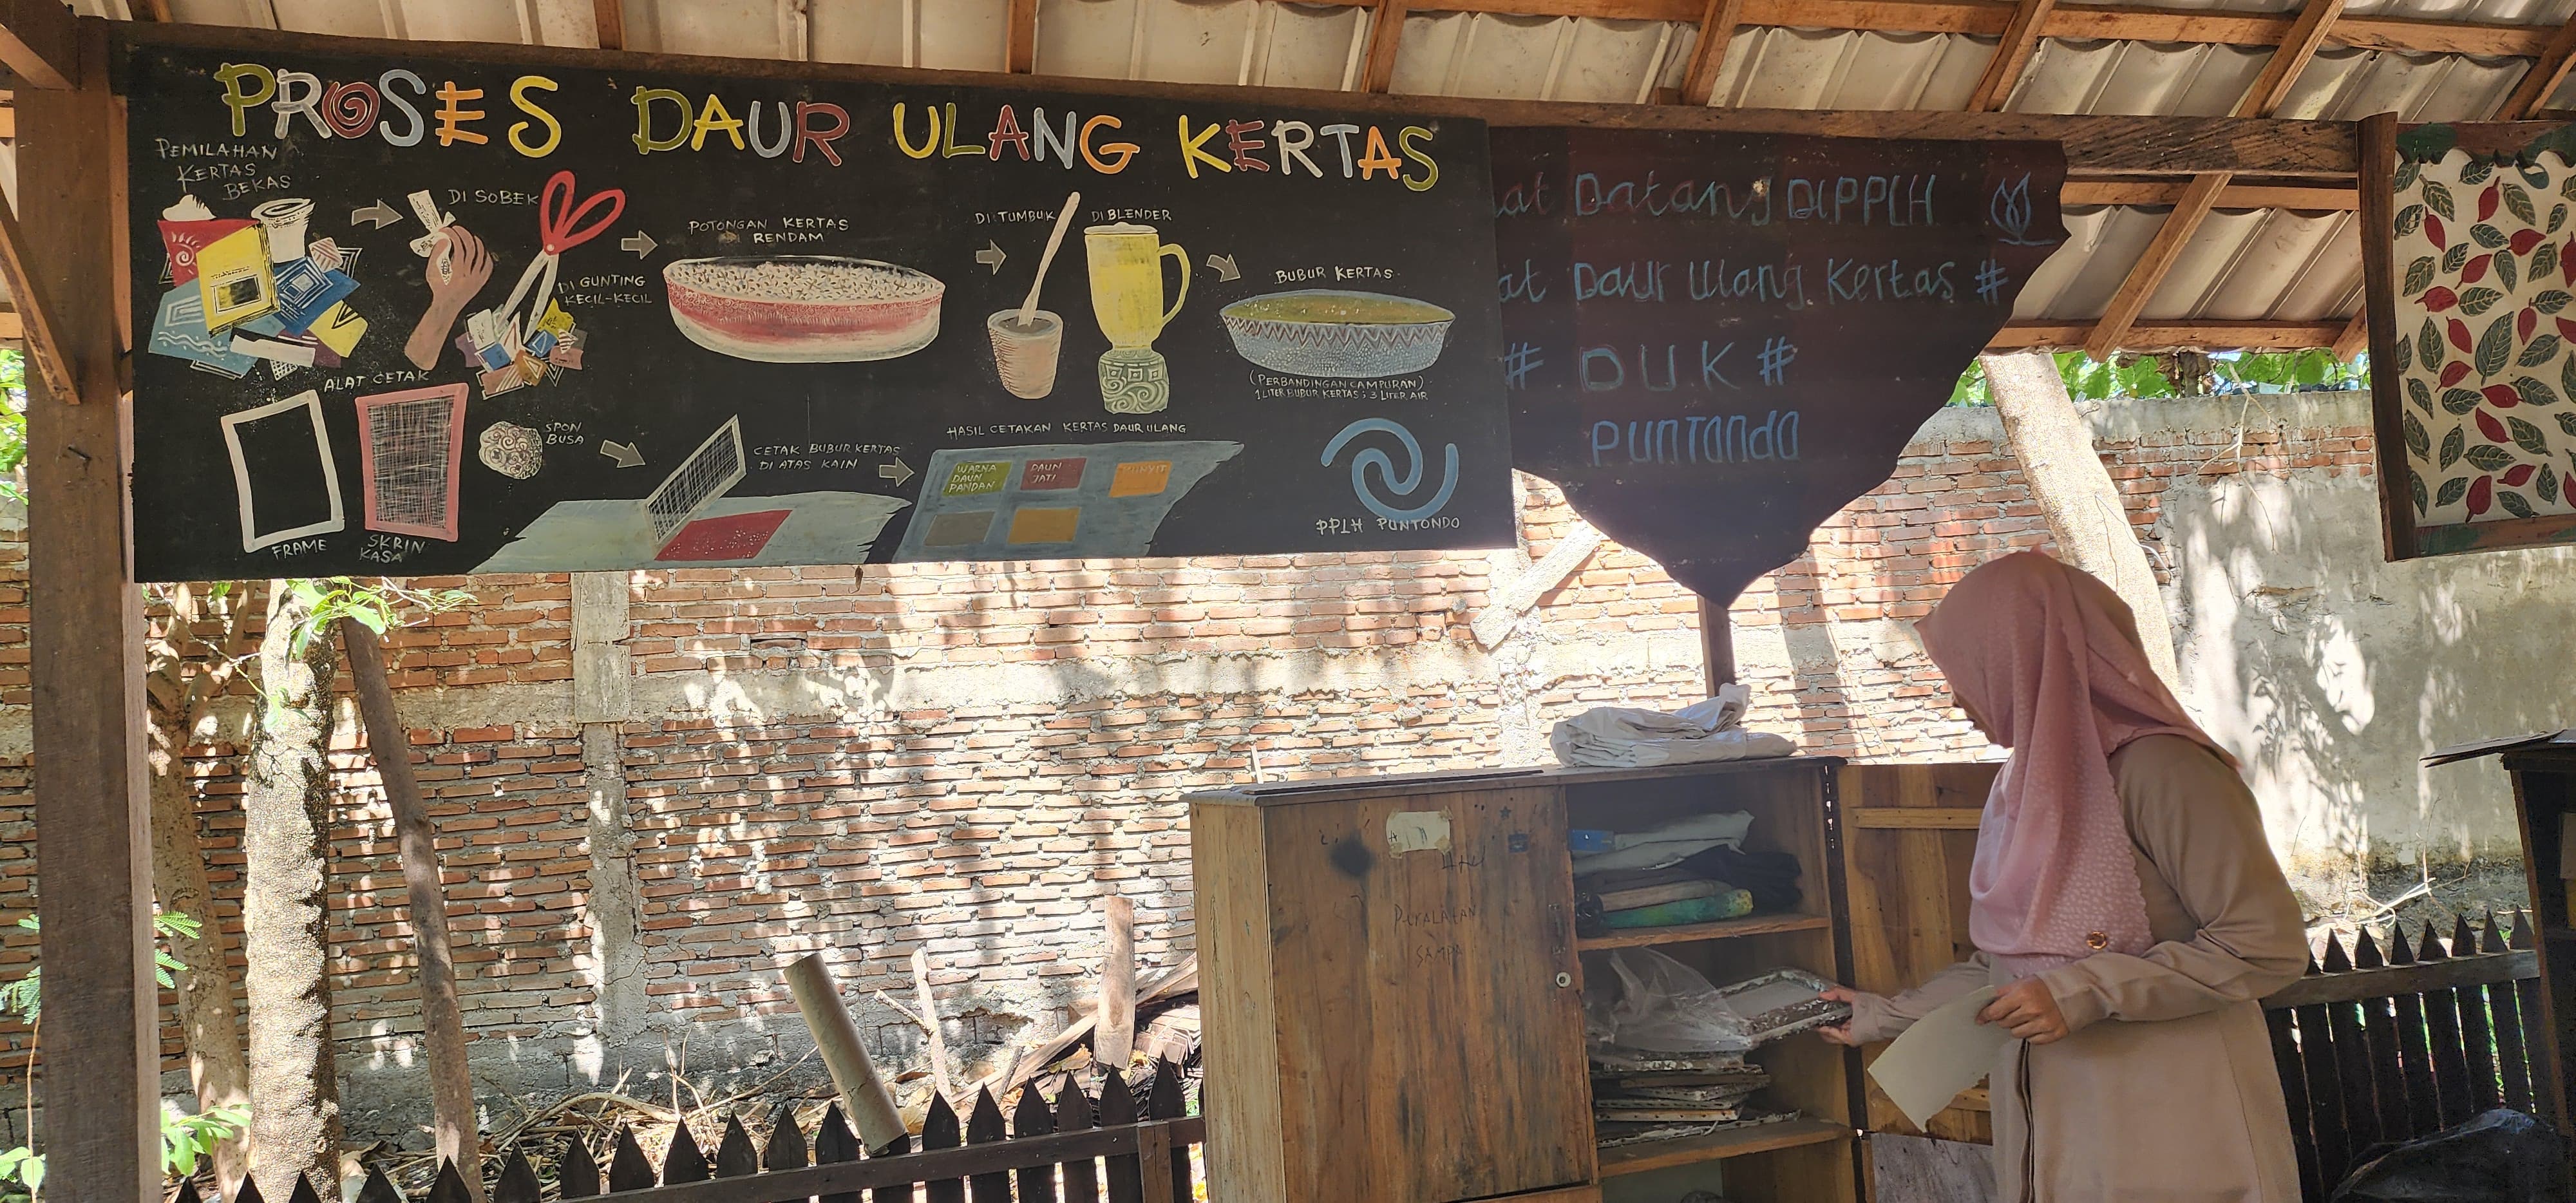 PROSES DAUR ULANG KERTAS
PEMILAHAN
KERTAS
BEKAS
DI SOBEK
DI GUNTING
KECIL-KECIL
POTONGAN KERTAS
DI RENDAM
DI TUMBUK
DI BLENDER
BUBUR KERTAS
(PERBANDINGAN CAMPURAN)
1 LITER BUBUR KERTAS ; 3 LITER AIR
ALAT CETAK
FRAME
SKRIN
KASA
SPON
BUSA
CETAK BUBUR KERTAS
DI ATAS KAIN
HASIL CETAKAN KERTAS DAUR ULANG
WARNA
DAUN
PANDAN
DAUN
JATI
KUNYIT
PPLH PUNTONDO
at Datang DI PPLH
at Daur Ulang Kertas #
# DUK #
Puntondo